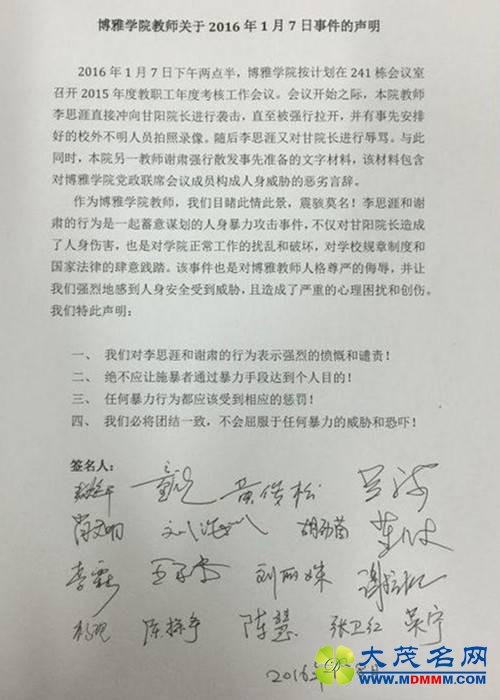 博雅学院教师关于 2016 年 1 月 7 日事件的声明
2016 年 1 月 7 日下午两点半，博雅学院按计划在 241 栋会议室
召开 2015 年度教职工年度考核工作会议。会议开始之际，本院教师
李思涯直接冲向甘阳院长进行袭击，直至被强行拉开，并有事先安排
好的校外不明人员拍照录像。随后李思涯又对甘院长进行辱骂。与此
同时，本院另一教师谢肃强行散发事先准备的文字材料，该材料包含
对博雅学院党政联席会议成员构成人身威胁的恶劣言辞。
作为博雅学院教师，我们目睹此情此景，震骇莫名！李思涯和谢
肃的行为是一起蓄意谋划的人身暴力攻击事件，不仅对甘阳院长造成
了人身伤害，也是对学院正常工作的扰乱和破坏，对学校规章制度和
国家法律的肆意践踏。该事件也是对博雅教师人格尊严的侮辱，并让
我们强烈地感到人身安全受到威胁，且造成了严重的心理困扰和创伤。
我们特此声明：
一、 我们对李思涯和谢肃的行为表示强烈的愤慨和谴责！
二、 绝不应让施暴者通过暴力手段达到个人目的！
三、 任何暴力行为都应该受到相应的惩罚！
四、 我们必将团结一致，不会屈服于任何暴力的威胁和恐吓！
签名人：
黄俊松
肖文明
刘丽姝
陈慧 张卫红
2016年
大茂名网
WWW.MDMMM.COM